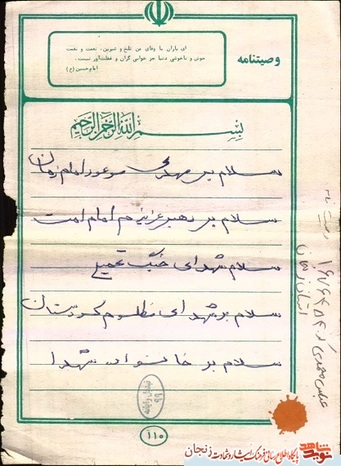 وصیتنامه
ای یاران با وفای من تلخ و شیرین، نعمت و نقمت
خوش و ناخوشی دنیا جز خوابی گران و غفلت‌آور نیست.
امام حسین (ع)
بسم الله الرحمن الرحیم
سلام بر مهدی موعود امام زمان
سلام بر رهبر عزیزم امام امت
سلام شهدای جنگ تحمیلی
سلام بر شهدای مظلوم کردستان
سلام بر خانواده شهدا
استان زنجان
۱۱۰
نوید شاهد
پایگاه اطلاع رسانی فرهنگ ایثار و شهادت زنجان